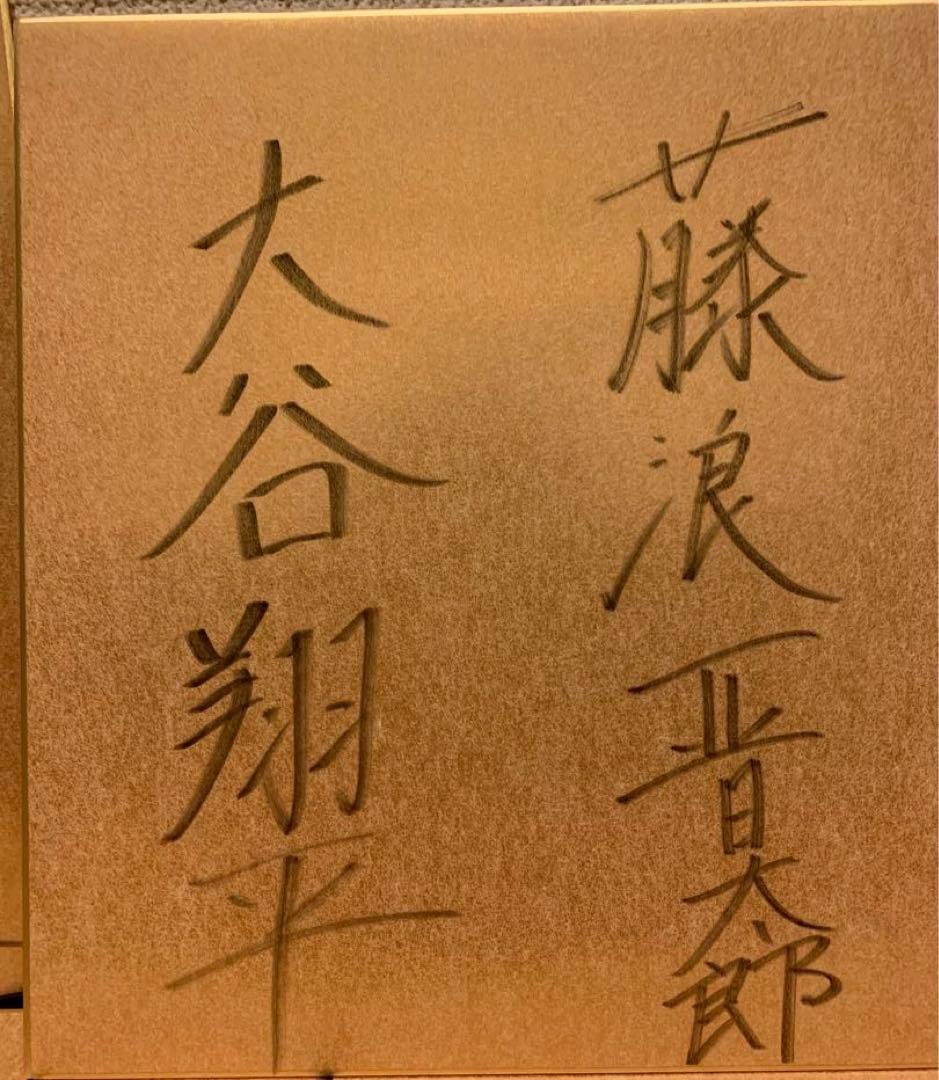 藤浪晋太郎
大谷翔平